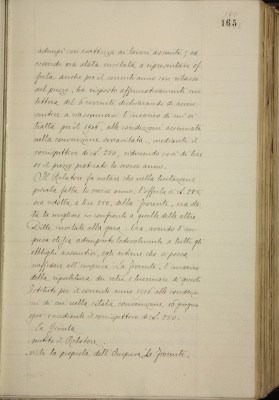 165
adempì con esattezza ai lavori assunti; ed
essendo ora stata invitata a ripresentare of-
ferta, anche per il corrente anno con ribasso
nel prezzo, ha risposto affermativamente con
lettera del 6 corrente dichiarando di accon-
sentire a riassumersi l'incarico di cui si
tratta per il 1906, alle condizioni accennate
nella convenzione succitata, mediante il
corrispettivo di L. 250, riducendo così di Lire
il prezzo praticato lo scorso anno.
Il Relatore fa notare che nella licitazione
privata fatta lo scorso anno, l'offerta di L. 285,
ora ridotta a Lire 250, della "Jorente", era sta-
ta la migliore in confronto a quella delle altre
Ditte invitate alla gara. Ora, avendo l'im-
presa stessa adempiuto lodevolmente a tutti gli
obblighi assuntisi, egli ritiene che si possa
confidare all'impresa "La", l'incarico
della ripulitura dei e di questo
Istituto per il corrente anno 1906 alle condizio-
ni di cui nella citata convenzione, 16 giugno
1905 e mediante il corrispettivo di L. 250.
La Giunta
sentito il Relatore;
vista la proposta dell'Impresa "La